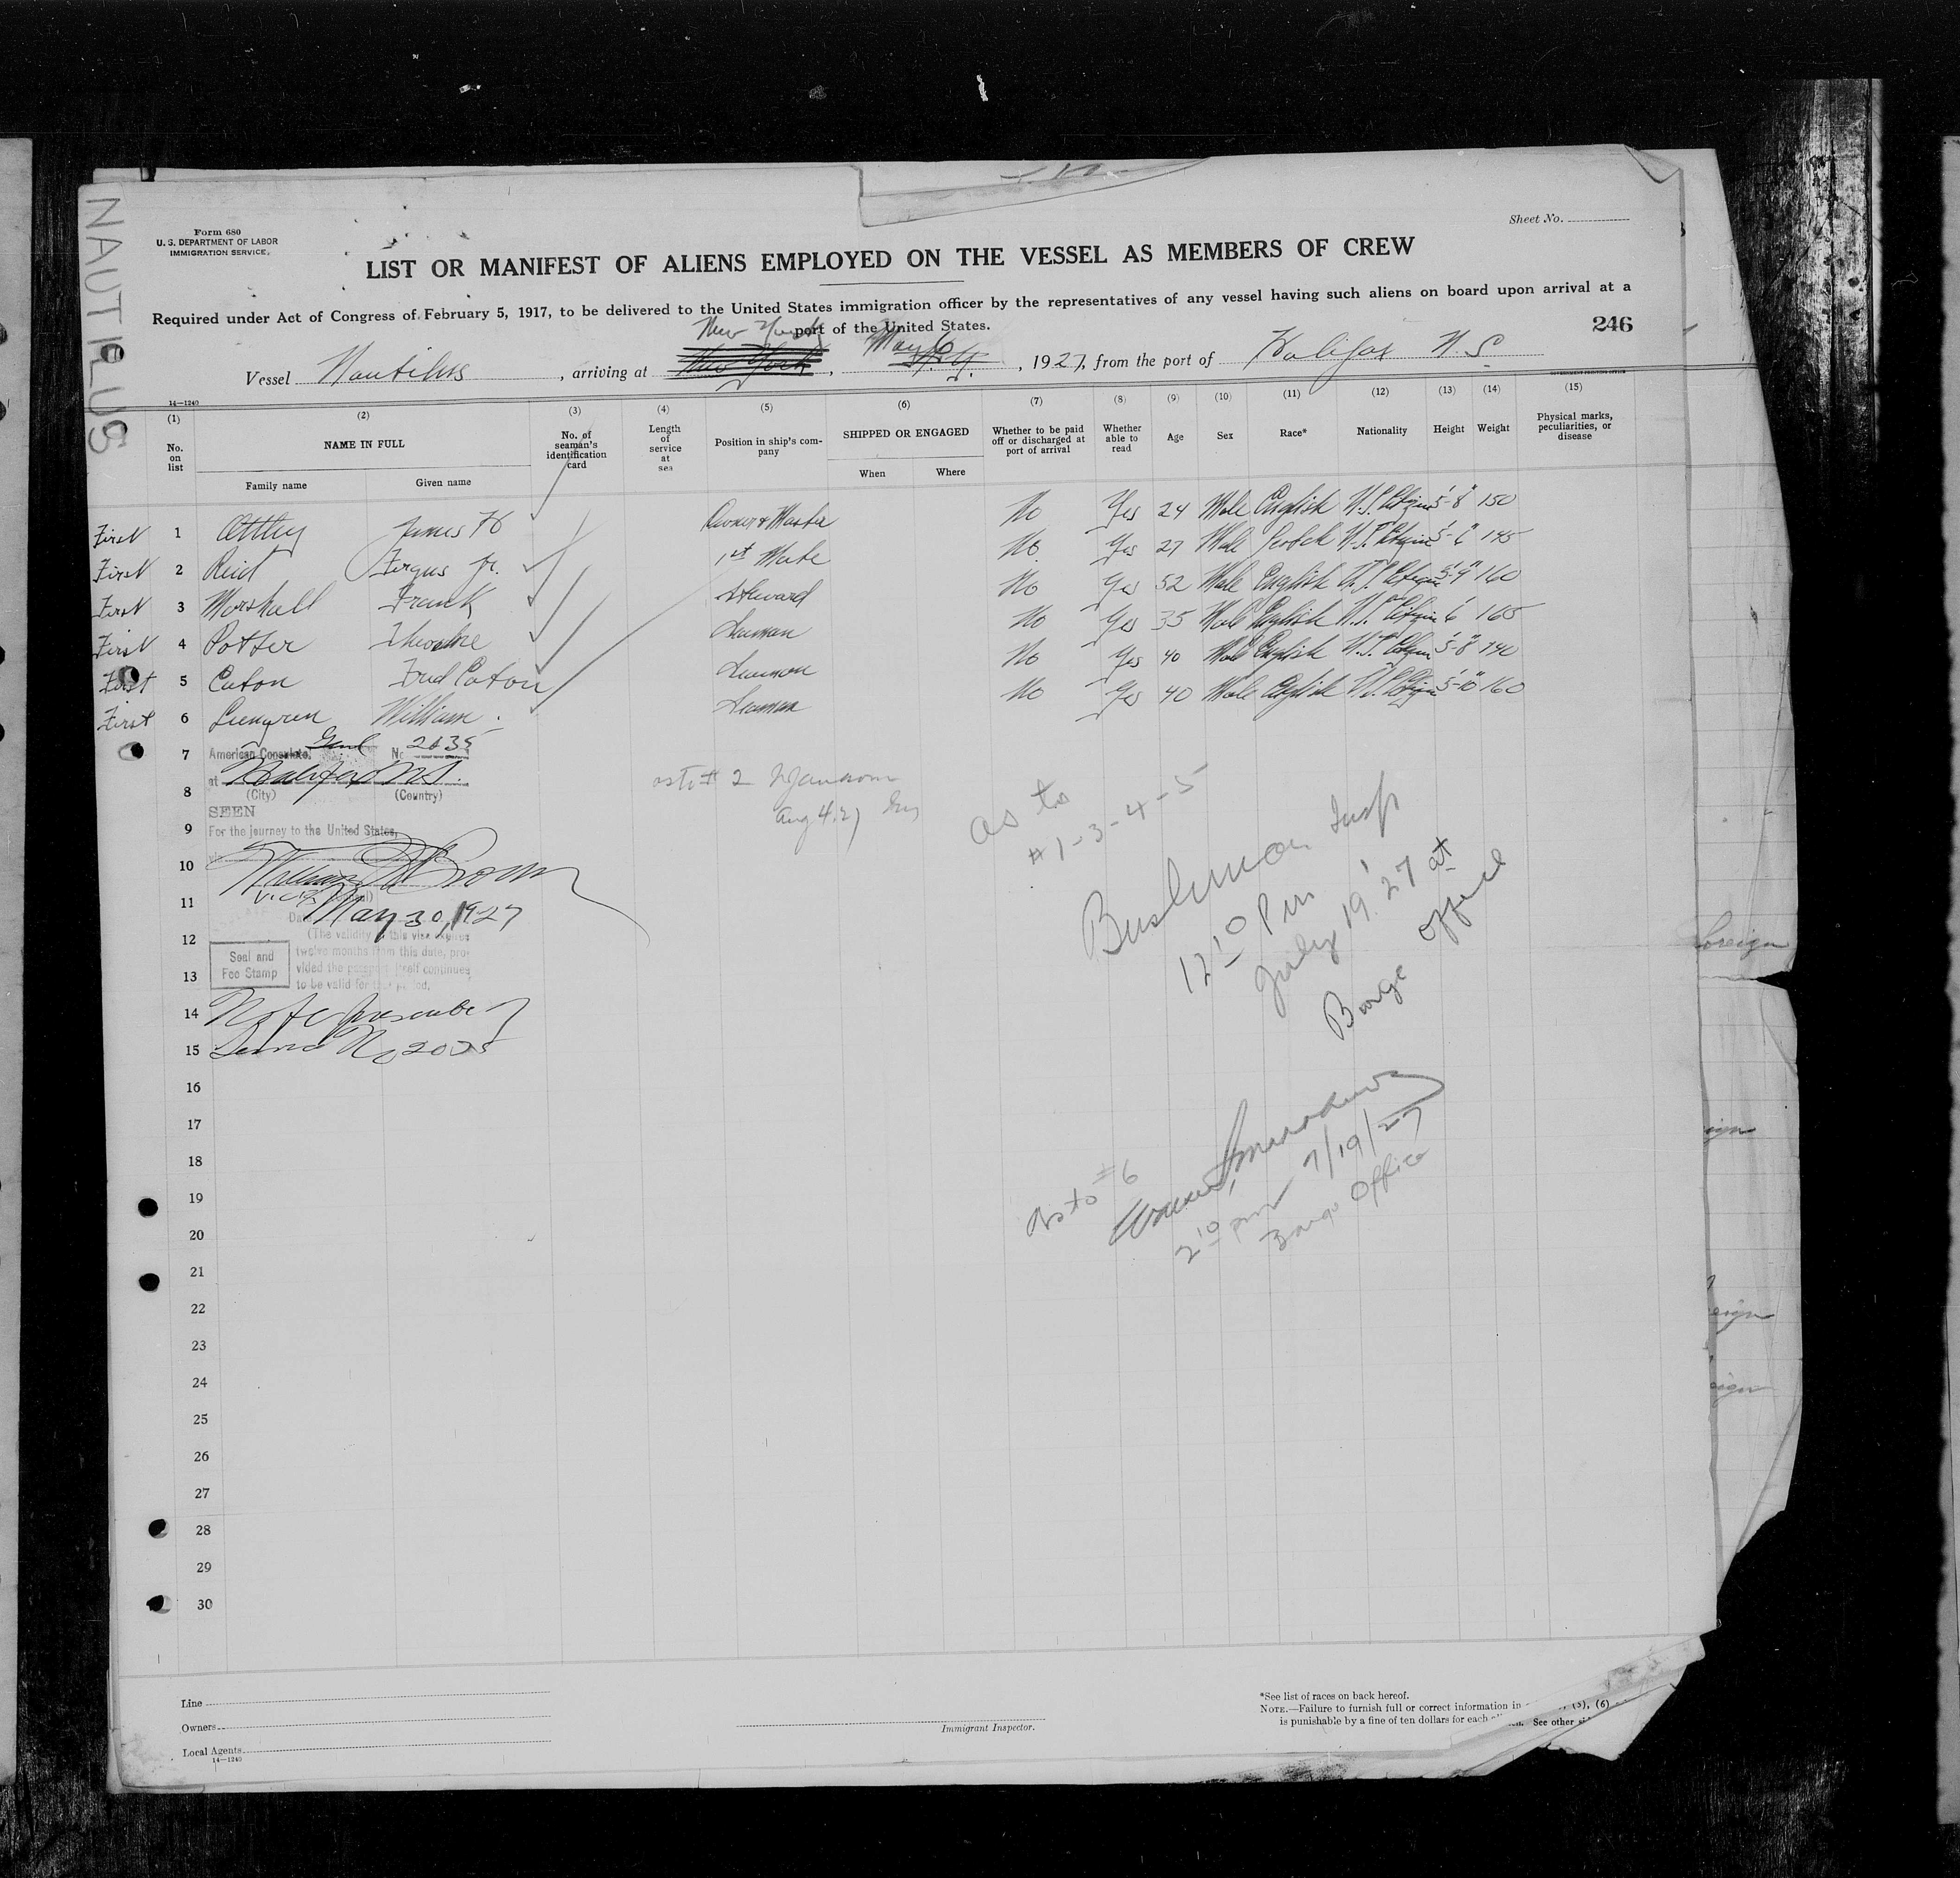 NAUTILUS
Form 680
U. S. DEPARTMENT OF LABOR
IMMIGRATION SERVICE
Sheet No.
LIST OR MANIFEST OF ALIENS EMPLOYED ON THE VESSEL AS MEMBERS OF CREW
Required under Act of Congress of February 5, 1917, to be delivered to the United States immigration officer by the representatives of any vessel having such aliens on board upon arrival at a
port of the United States.
246
New York May 6
Vessel Nautilus, arriving at New York, N.Y., 1927, from the port of Halifax N S
14—1240
(1) (2) (3) (4) (5) (6) (7) (8) (9) (10) (11) (12) (13) (14) (15)
No. on list NAME IN FULL No. of seaman's identification card Length of service at sea Position in ship's company SHIPPED OR ENGAGED Whether to be paid off or discharged at port of arrival Whether able to read Age Sex Race* Nationality Height Weight Physical marks, peculiarities, or disease
Family name Given name When Where
First 1 James Owner & Master No Yes 24 Male English U.S. Citizen 5'-8" 150
First 2 Reid Fergus Jr. 1st Mate No Yes 27 Male Scotch U.S. Citizen 5'-6" 145
First 3 Marshall Frank Steward No Yes 52 Male English U.S. Citizen 5'-9" 160
First 4 Potter Theodore Seaman No Yes 35 Male English U.S. Citizen 6' 165
First 5 Caton Fred Caton Seaman No Yes 40 Male English U.S. Citizen 5'-8" 140
First 6 William Seaman No Yes 40 Male English U.S. Citizen 5'-10" 160
7 American Consulate Genl No. 2035
8 at Halifax N.S.
(City) (Country)
SEEN
9 For the journey to the United States,
10 William Brown
11 Vice
May 30, 1927
12 (The validity of this visa expires
twelve months from this date, pro-
13 vided the passport itself continues
to be valid for that period.
Seal and
Fee Stamp
14 No fee prescribed
15 Service No 2035
as to # 2
Aug 4.27
as to
# 1-3-4-5
Insp
12 10 Pm
July 19 '27 at
Barge Office
as to #6
2 10 pm 7/19/27
Barge Office
16
17
18
19
20
21
22
23
24
25
26
27
28
29
30
foreign
Line
Owners
Local Agents
14—1240
Immigrant Inspector.
*See list of races on back hereof.
NOTE.—Failure to furnish full or correct information in (5), (6)
is punishable by a fine of ten dollars for each See other